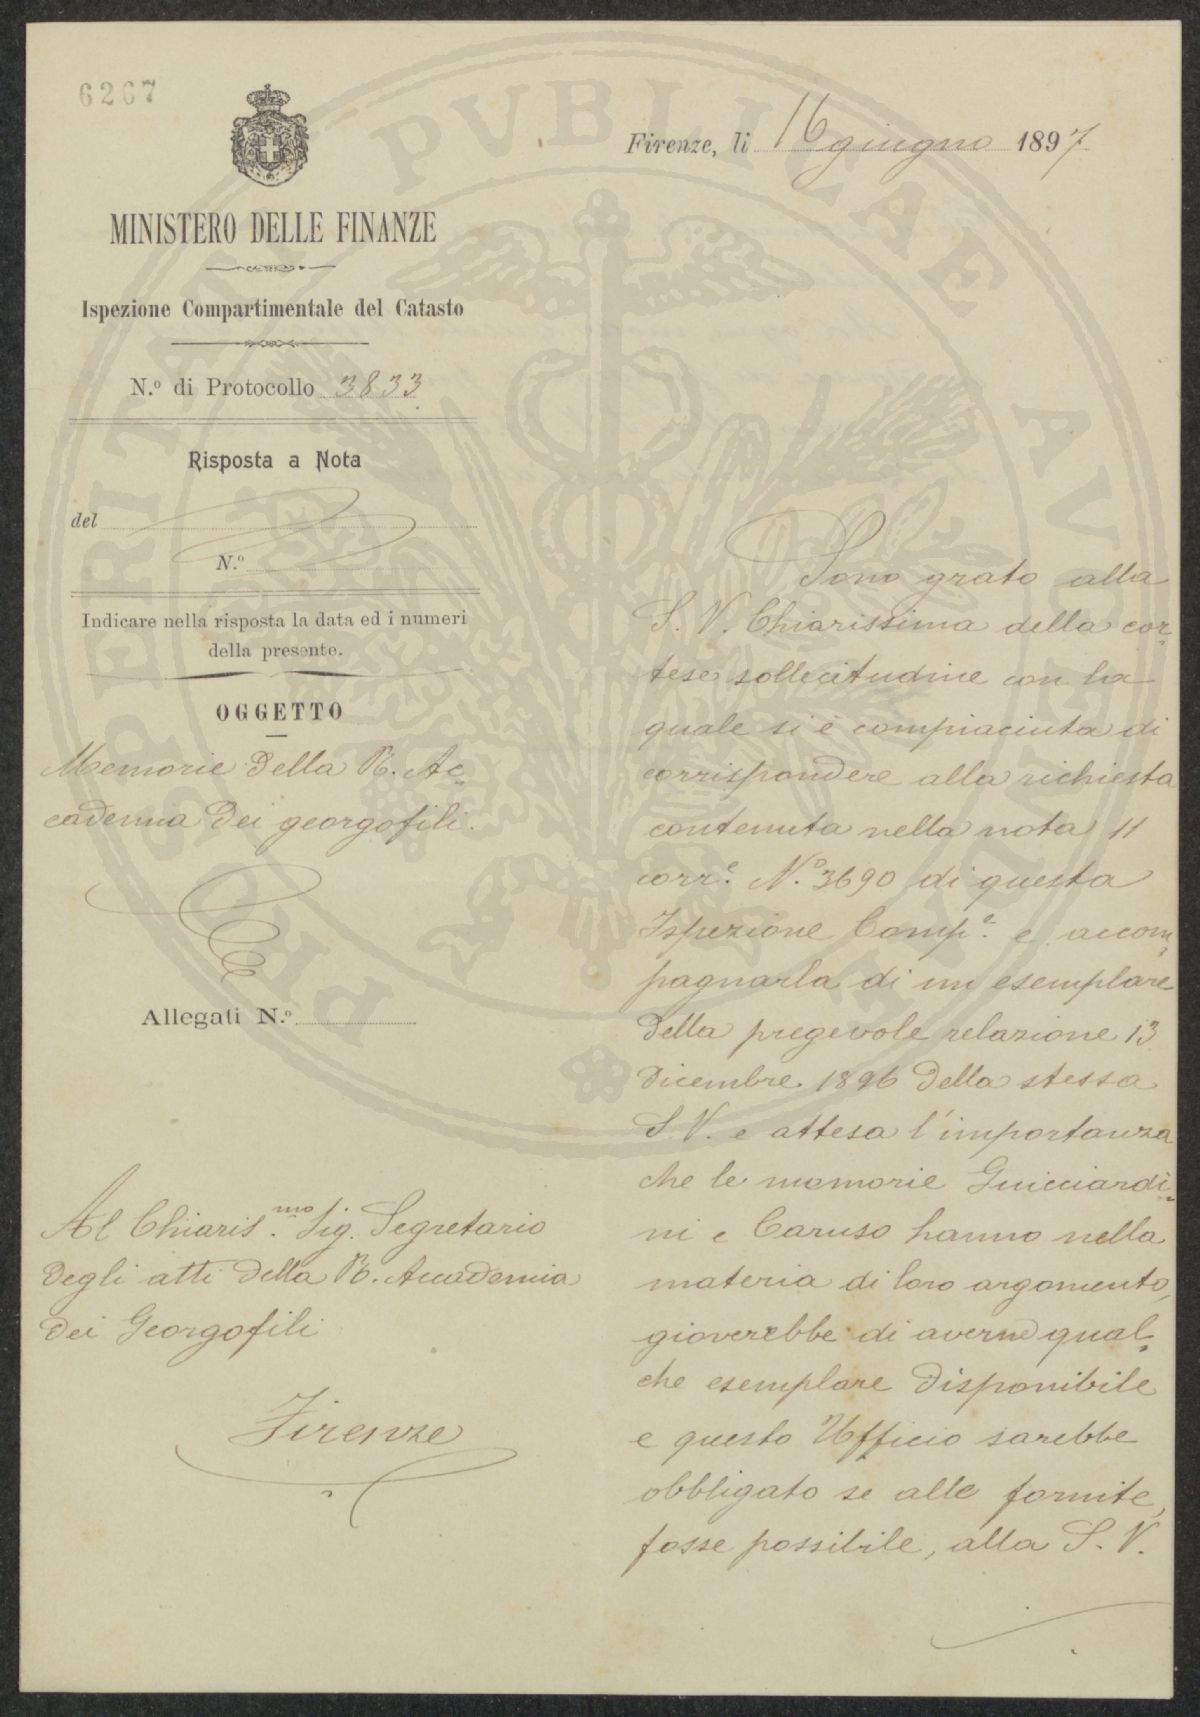 6267
Firenze, li 16 giugno 1897
MINISTERO DELLE FINANZE
Ispezione Compartimentale del Catasto
N.º di Protocollo 3833
Risposta a Nota
del
N.º
Indicare nella risposta la data ed i numeri
della presente.
OGGETTO
Memorie della R. Ac-
cademia dei georgofili.
Allegati N.º
Al Chiaris.mo Sig. Segretario
degli atti della R. Accademia
dei Georgofili
Firenze
Sono grato alla
S. V. Chiarissima della cor-
tese sollecitudine con la
quale si è compiaciuta di
corrispondere alla richiesta
contenuta nella nota 11
corr.e N.º 3690 di questa
Ispezione Comp.e e accom-
pagnarla di un esemplare
della pregevole relazione 13
dicembre 1896 della stessa
S. V. e attesa l'importanza
che le memorie Guicciardi-
ni e Caruso hanno nella
materia di loro argomento,
gioverebbe di averne qual-
che esemplare disponibile
e questo Ufficio sarebbe
obbligato se alle fornite,
fosse possibile, alla S. V.
PROSPERITATI PVBLICAE AVGENDAE